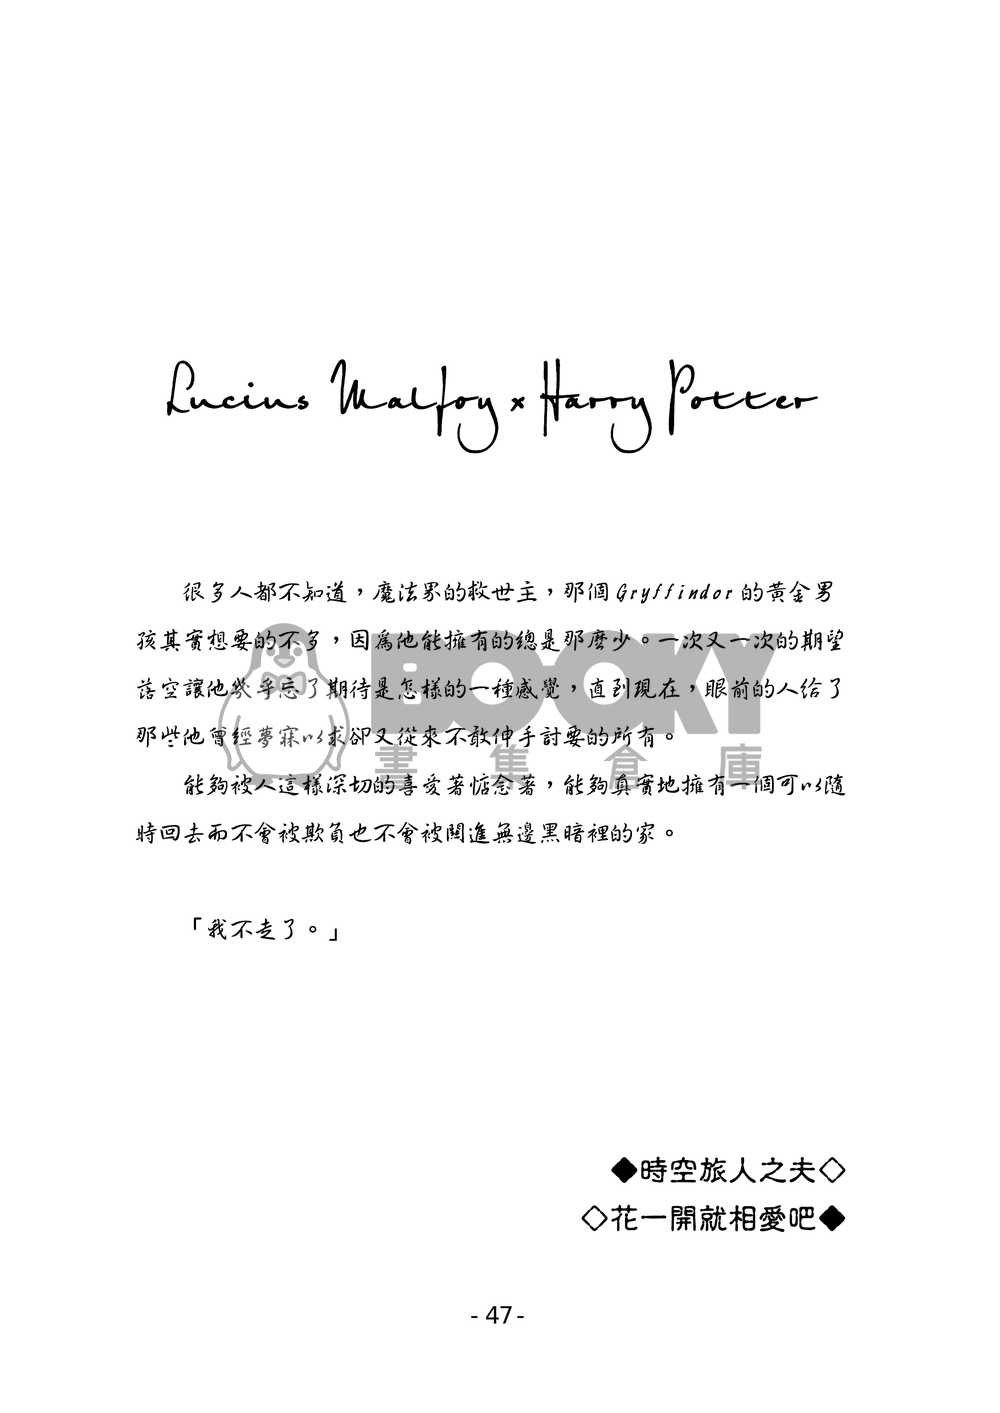 Lucius Malfoy x Harry Potter
很多人都不知道，魔法界的救世主，那個 Gryffindor 的黃金男
孩其實想要的不多，因為他能擁有的總是那麼少。一次又一次的期望
落空讓他幾乎忘了期待是怎樣的一種感覺，直到現在，眼前的人給了
那些他曾經夢寐以求卻又從來不敢伸手討要的所有。
能夠被人這樣深切的喜愛著惦念著，能夠真實地擁有一個可以隨
時回去而不會被欺負也不會被關進無邊黑暗裡的家。
「我不走了。」
BOOKY
書集倉庫
◆時空旅人之夫◇
◇花一開就相愛吧◆
- 47 -